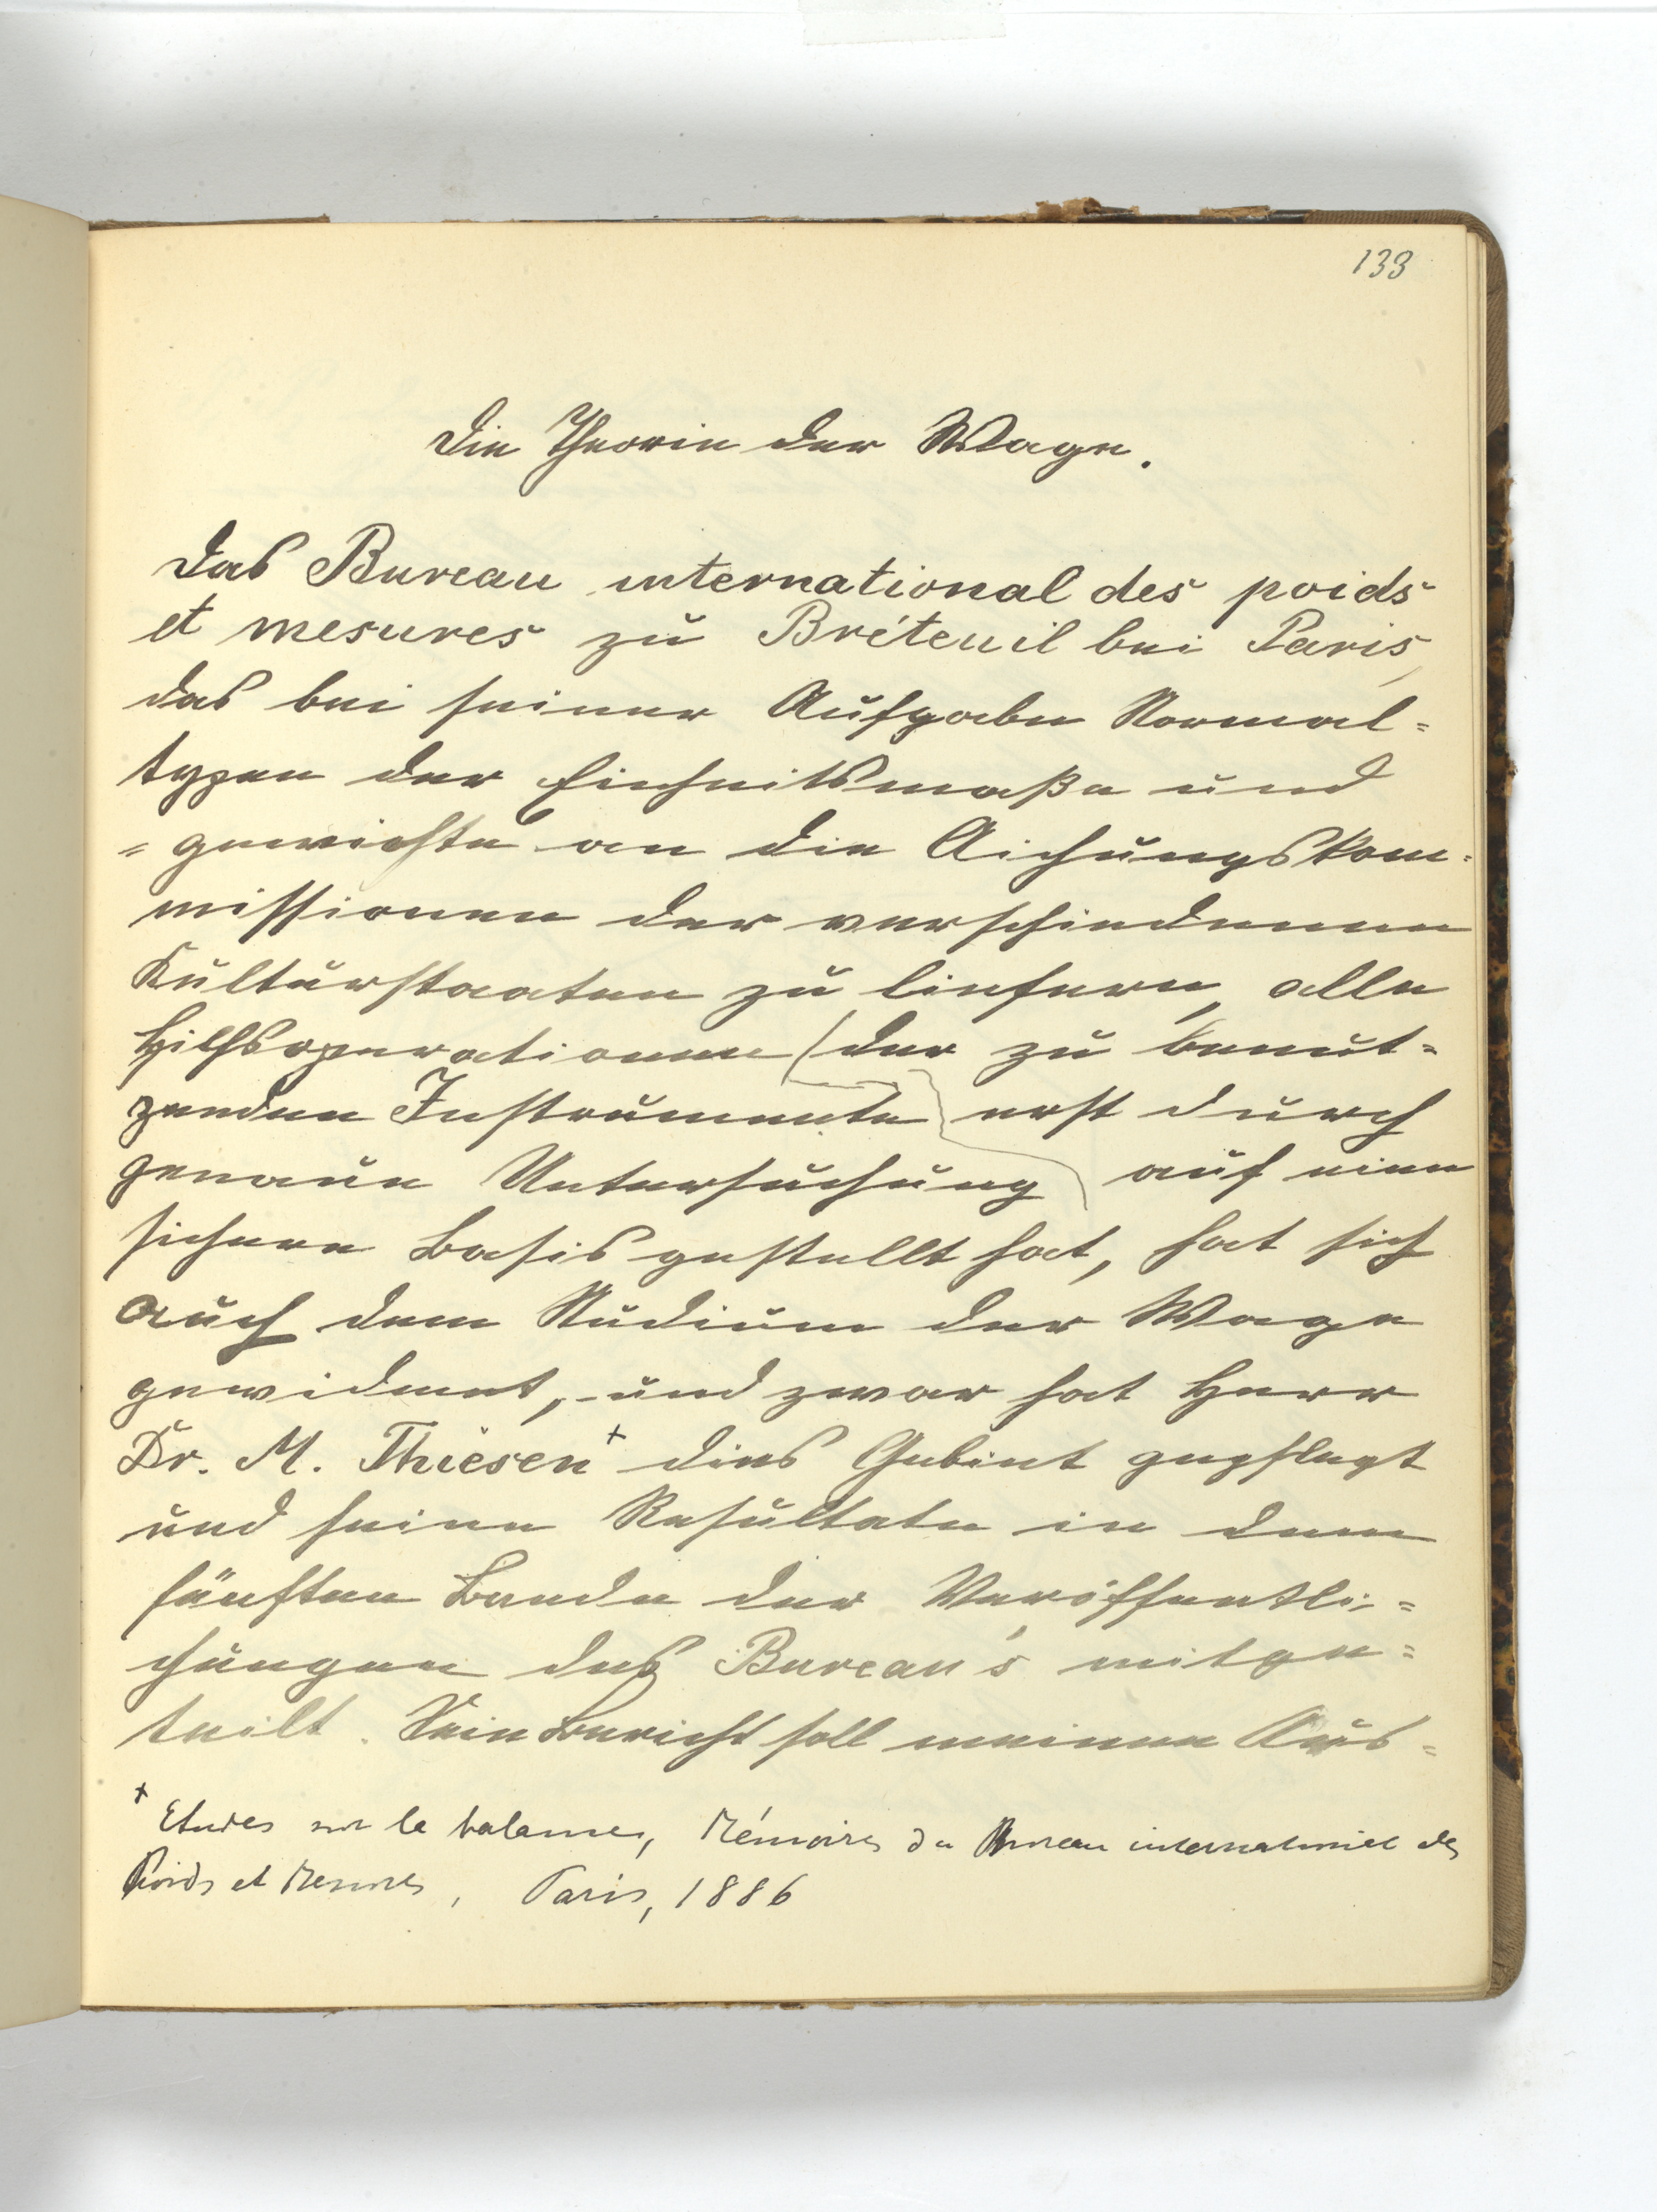 133
Die Theorie der Wage.
Das Bureau international des poids
et mesures zu Bréteuil bei Paris,
das bei seiner Aufgabe Normal=
typen der Einheitsmaße und
=gewichte an die Aichungskom=
missionen der verschiedenen
Kulturstaaten zu liefern, alle
Hilfsoperationen (der zu benut=
zenden Instrumente erst durch
genaue Untersuchung auf eine
sichere Basis gestellt hat, hat sich
auch dem Studium der Wage
gewidmet, und zwar hat Herr
Dr. M. Thiesen+ dies Gebiet gepflegt
und seine Resultate in dem
fünften Bande der Veröffentli=
chungen des Bureau's mitge=
teilt. Sein Bericht soll meinen Aus=
+ Etudes sur la balance, Mémoires du Bureau international des
Poids et Mesures, Paris, 1886